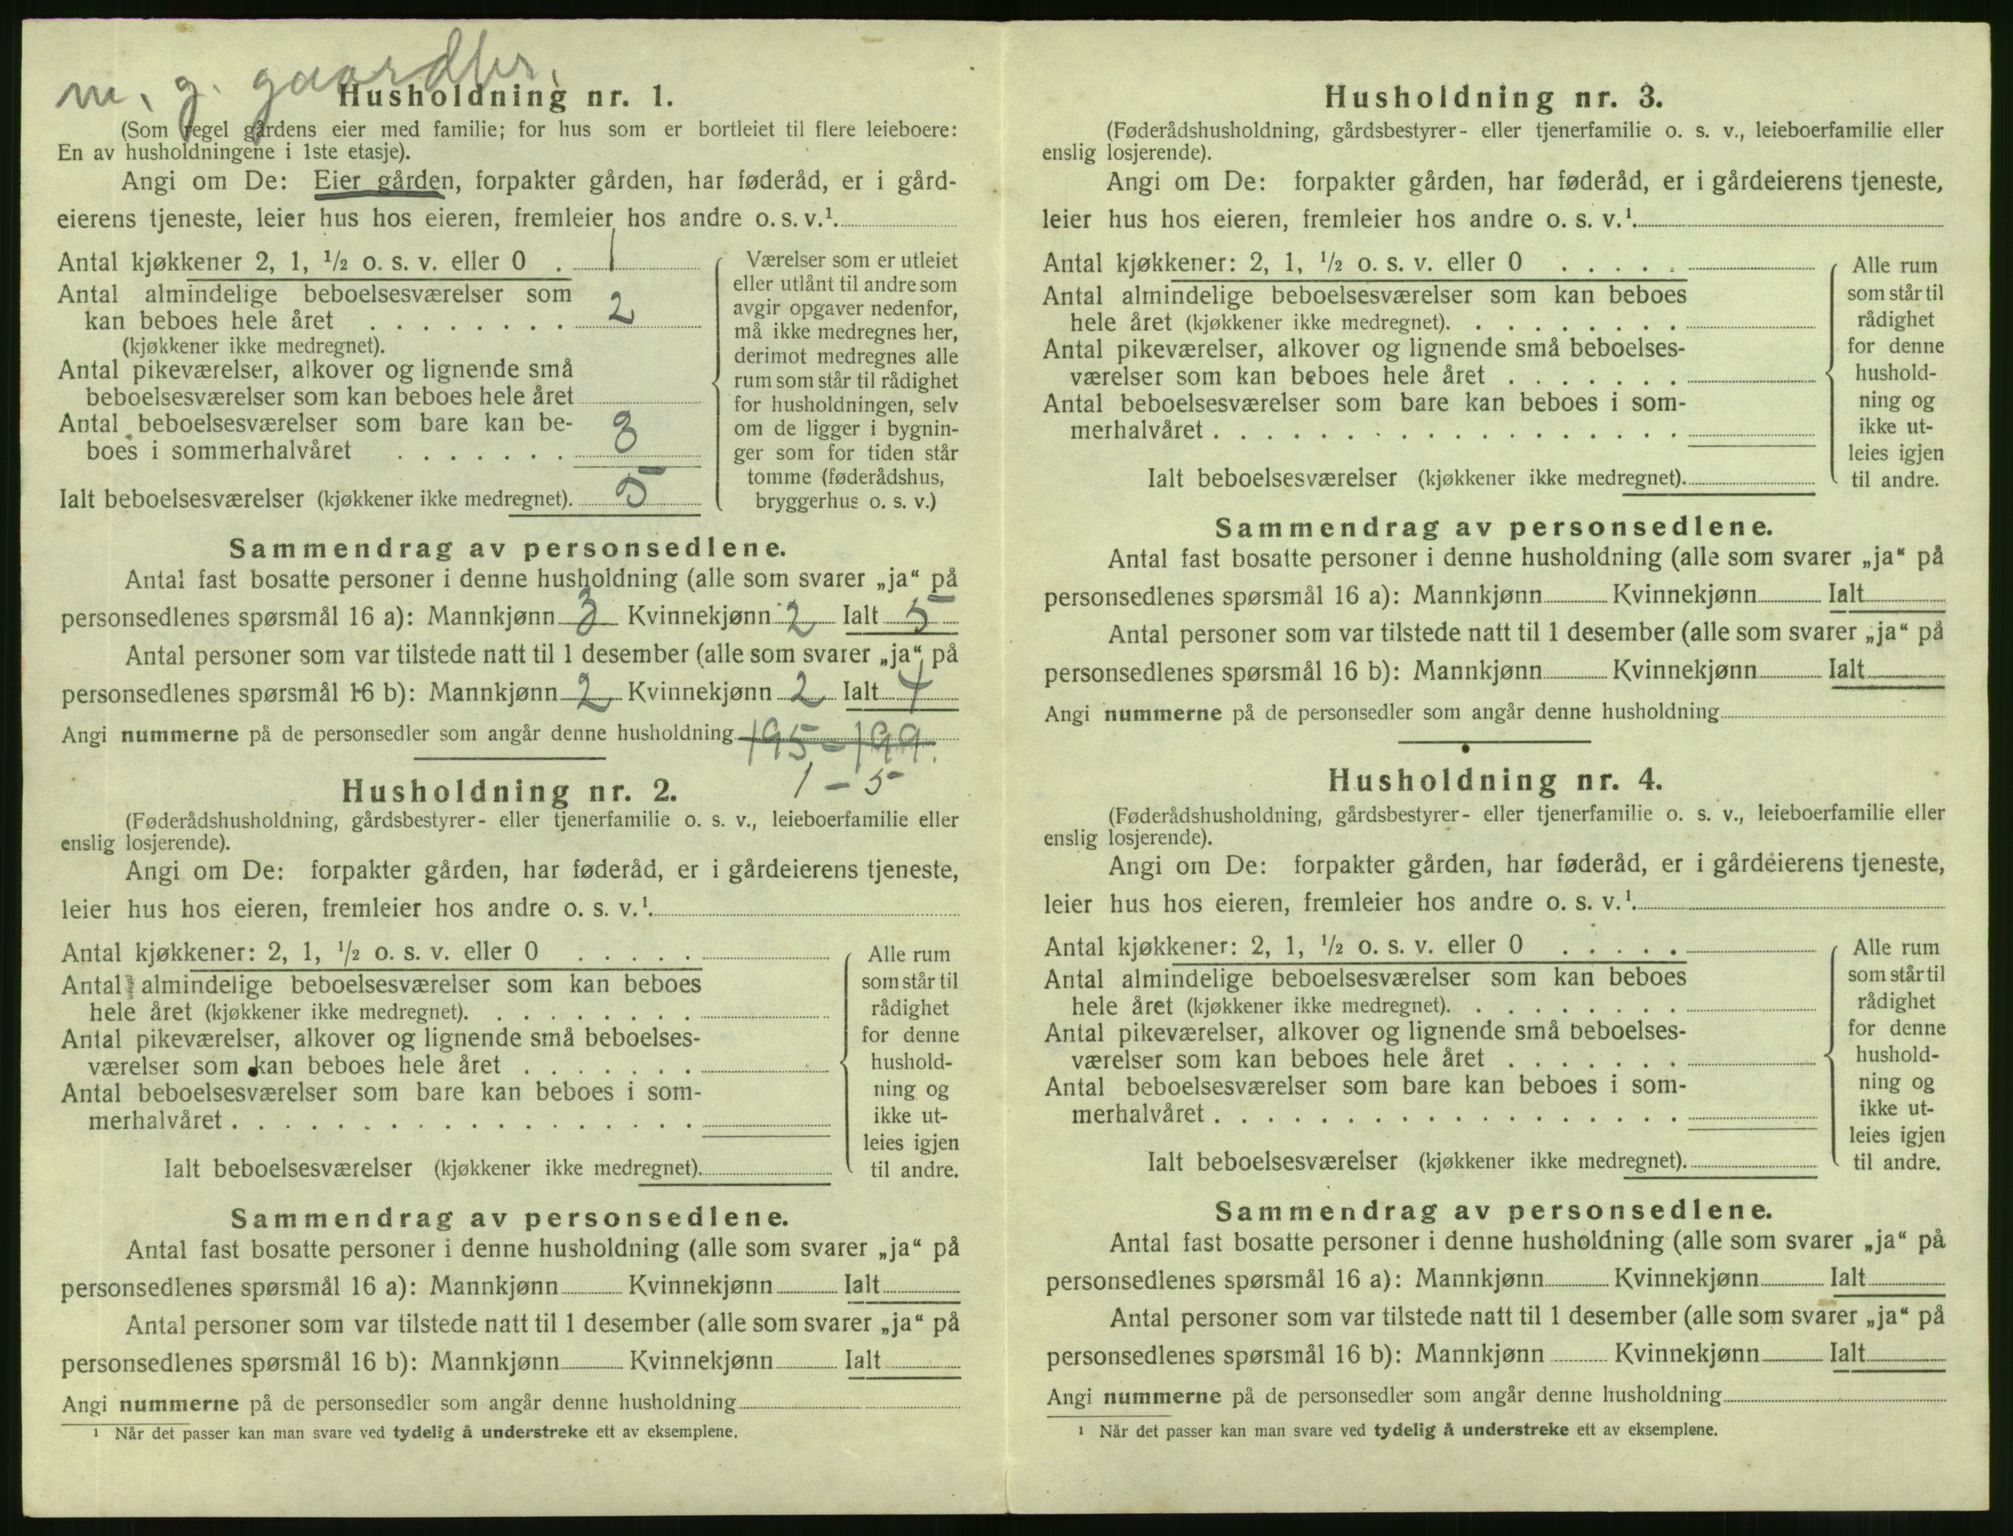 m. g. gaardbr.
Husholdning nr. 1.
(Som regel gårdens eier med familie; for hus som er bortleiet til flere leieboere:
En av husholdningene i 1ste etasje).
Angi om De: Eier gården, forpakter gården, har føderåd, er i gård-
eierens tjeneste, leier hus hos eieren, fremleier hos andre o. s. v.¹.
Antal kjøkkener 2, 1, ½ o. s. v. eller 0 . 1
Antal almindelige beboelsesværelser som
kan beboes hele året . . . . . . . . 2
(kjøkkener ikke medregnet).
Antal pikeværelser, alkover og lignende små
beboelsesværelser som kan beboes hele året
Antal beboelsesværelser som bare kan be-
boes i sommerhalvåret . . . . . . . 3
Ialt beboelsesværelser (kjøkkener ikke medregnet). 5
Værelser som er utleiet
eller utlånt til andre som
avgir opgaver nedenfor,
må ikke medregnes her,
derimot medregnes alle
rum som står til rådighet
for husholdningen, selv
om de ligger i bygnin-
ger som for tiden står
tomme (føderådshus,
bryggerhus o. s. v.)
Sammendrag av personsedlene.
Antal fast bosatte personer i denne husholdning (alle som svarer „ja“ på
personsedlenes spørsmål 16 a): Mannkjønn 3 Kvinnekjønn 2 Ialt 5
Antal personer som var tilstede natt til 1 desember (alle som svarer „ja“ på
personsedlenes spørsmål 16 b): Mannkjønn 2 Kvinnekjønn 2 Ialt 4
Angi nummerne på de personsedler som angår denne husholdning 195-199.
1 - 5
Husholdning nr. 2.
(Føderådshusholdning, gårdsbestyrer- eller tjenerfamilie o. s. v., leieboerfamilie eller
enslig losjerende).
Angi om De: forpakter gården, har føderåd, er i gårdeierens tjeneste,
leier hus hos eieren, fremleier hos andre o. s. v.¹.
Antal kjøkkener: 2, 1, ½ o. s. v. eller 0 . . . . .
Antal almindelige beboelsesværelser som kan beboes
hele året (kjøkkener ikke medregnet). . . . . . . . .
Antal pikeværelser, alkover og lignende små beboelses-
værelser som kan beboes hele året . . . . . . .
Antal beboelsesværelser som bare kan beboes i som-
merhalvåret . . . . . . . . . . . . . . . . . .
Ialt beboelsesværelser (kjøkkener ikke medregnet).
Alle rum
som står til
rådighet
for denne
hushold-
ning og
ikke ut-
leies igjen
til andre.
Sammendrag av personsedlene.
Antal fast bosatte personer i denne husholdning (alle som svarer „ja“ på
personsedlenes spørsmål 16 a): Mannkjønn Kvinnekjønn Ialt
Antal personer som var tilstede natt til 1 desember (alle som svarer „ja“ på
personsedlenes spørsmål 16 b): Mannkjønn Kvinnekjønn Ialt
Angi nummerne på de personsedler som angår denne husholdning
¹ Når det passer kan man svare ved tydelig å understreke ett av eksemplene.
Husholdning nr. 3.
(Føderådshusholdning, gårdsbestyrer- eller tjenerfamilie o. s. v., leieboerfamilie eller
enslig losjerende).
Angi om De: forpakter gården, har føderåd, er i gårdeierens tjeneste,
leier hus hos eieren, fremleier hos andre o. s. v.¹.
Antal kjøkkener: 2, 1, ½ o. s. v. eller 0 . . . . .
Antal almindelige beboelsesværelser som kan beboes
hele året (kjøkkener ikke medregnet). . . . . . . . .
Antal pikeværelser, alkover og lignende små beboelses-
værelser som kan beboes hele året . . . . . . .
Antal beboelsesværelser som bare kan beboes i som-
merhalvåret . . . . . . . . . . . . . . . . . .
Ialt beboelsesværelser (kjøkkener ikke medregnet).
Alle rum
som står til
rådighet
for denne
hushold-
ning og
ikke ut-
leies igjen
til andre.
Sammendrag av personsedlene.
Antal fast bosatte personer i denne husholdning (alle som svarer „ja“ på
personsedlenes spørsmål 16 a): Mannkjønn Kvinnekjønn Ialt
Antal personer som var tilstede natt til 1 desember (alle som svarer „ja“ på
personsedlenes spørsmål 16 b): Mannkjønn Kvinnekjønn Ialt
Angi nummerne på de personsedler som angår denne husholdning
Husholdning nr. 4.
(Føderådshusholdning, gårdsbestyrer- eller tjenerfamilie o. s. v., leieboerfamilie eller
enslig losjerende).
Angi om De: forpakter gården, har føderåd, er i gårdeierens tjeneste,
leier hus hos eieren, fremleier hos andre o. s. v.¹.
Antal kjøkkener: 2, 1, ½ o. s. v. eller 0 . . . . .
Antal almindelige beboelsesværelser som kan beboes
hele året (kjøkkener ikke medregnet). . . . . . . . .
Antal pikeværelser, alkover og lignende små beboelses-
værelser som kan beboes hele året . . . . . . .
Antal beboelsesværelser som bare kan beboes i som-
merhalvåret . . . . . . . . . . . . . . . . . .
Ialt beboelsesværelser (kjøkkener ikke medregnet).
Alle rum
som står til
rådighet
for denne
hushold-
ning og
ikke ut-
leies igjen
til andre.
Sammendrag av personsedlene.
Antal fast bosatte personer i denne husholdning (alle som svarer „ja“ på
personsedlenes spørsmål 16 a): Mannkjønn Kvinnekjønn Ialt
Antal personer som var tilstede natt til 1 desember (alle som svarer „ja“ på
personsedlenes spørsmål 16 b): Mannkjønn Kvinnekjønn Ialt
Angi nummerne på de personsedler som angår denne husholdning
¹ Når det passer kan man svare ved tydelig å understreke ett av eksemplene.